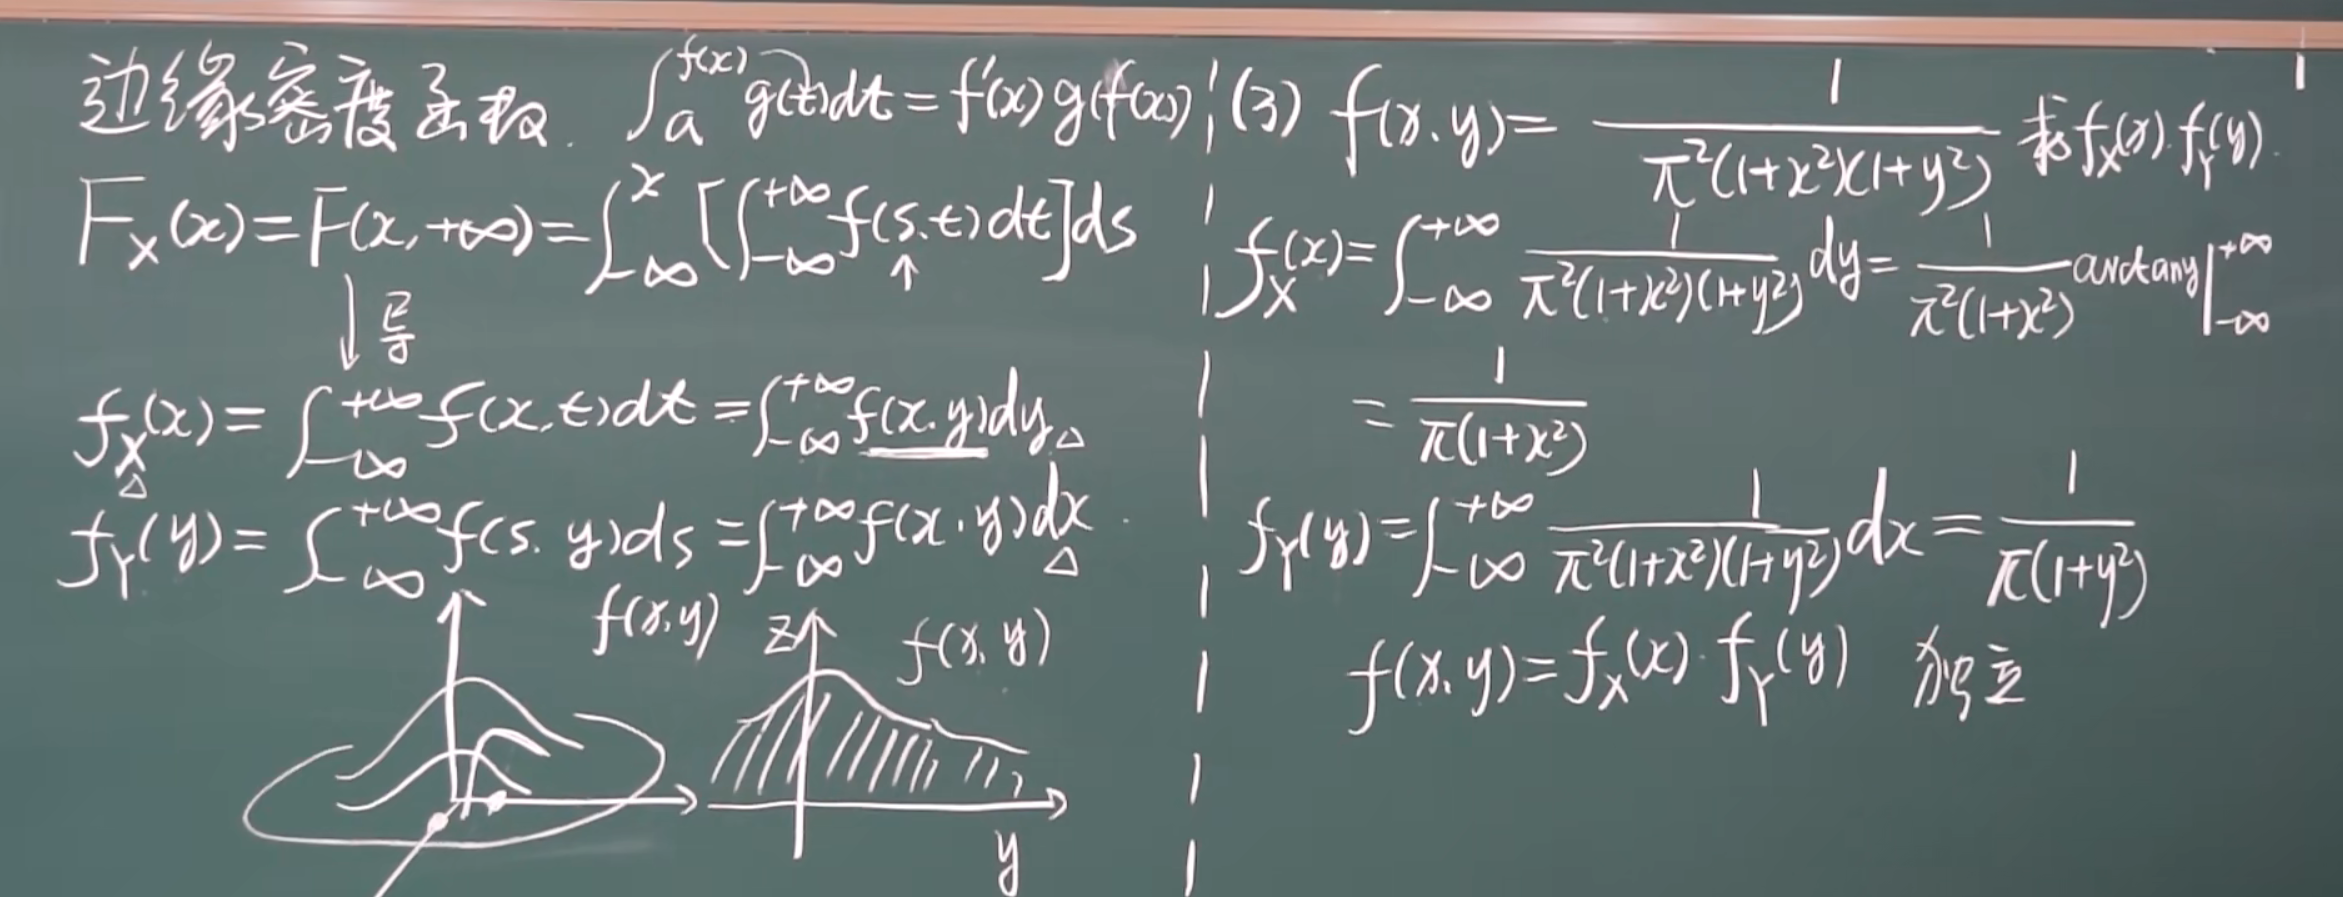 边缘密度函数. ∫_a^{f(x)} g(t)dt = f'(x) g(f(x))
F_X(x) = F(x, +∞) = ∫_{-∞}^{x} [∫_{-∞}^{+∞} f(s,t)dt]ds
↓导
f_X(x) = ∫_{-∞}^{+∞} f(x,t)dt = ∫_{-∞}^{+∞} f(x,y)dy
f_Y(y) = ∫_{-∞}^{+∞} f(s,y)ds = ∫_{-∞}^{+∞} f(x,y)dx
f(x,y)
z f(x,y)
y
(3) f(x,y) = 1/(π²(1+x²)(1+y²)) 求f_X(x).f_Y(y).
f_X(x) = ∫_{-∞}^{+∞} 1/(π²(1+x²)(1+y²)) dy = 1/(π²(1+x²)) arctany|_{-∞}^{+∞}
= 1/(π(1+x²))
f_Y(y) = ∫_{-∞}^{+∞} 1/(π²(1+x²)(1+y²)) dx = 1/(π(1+y²))
f(x,y) = f_X(x)·f_Y(y) 独立